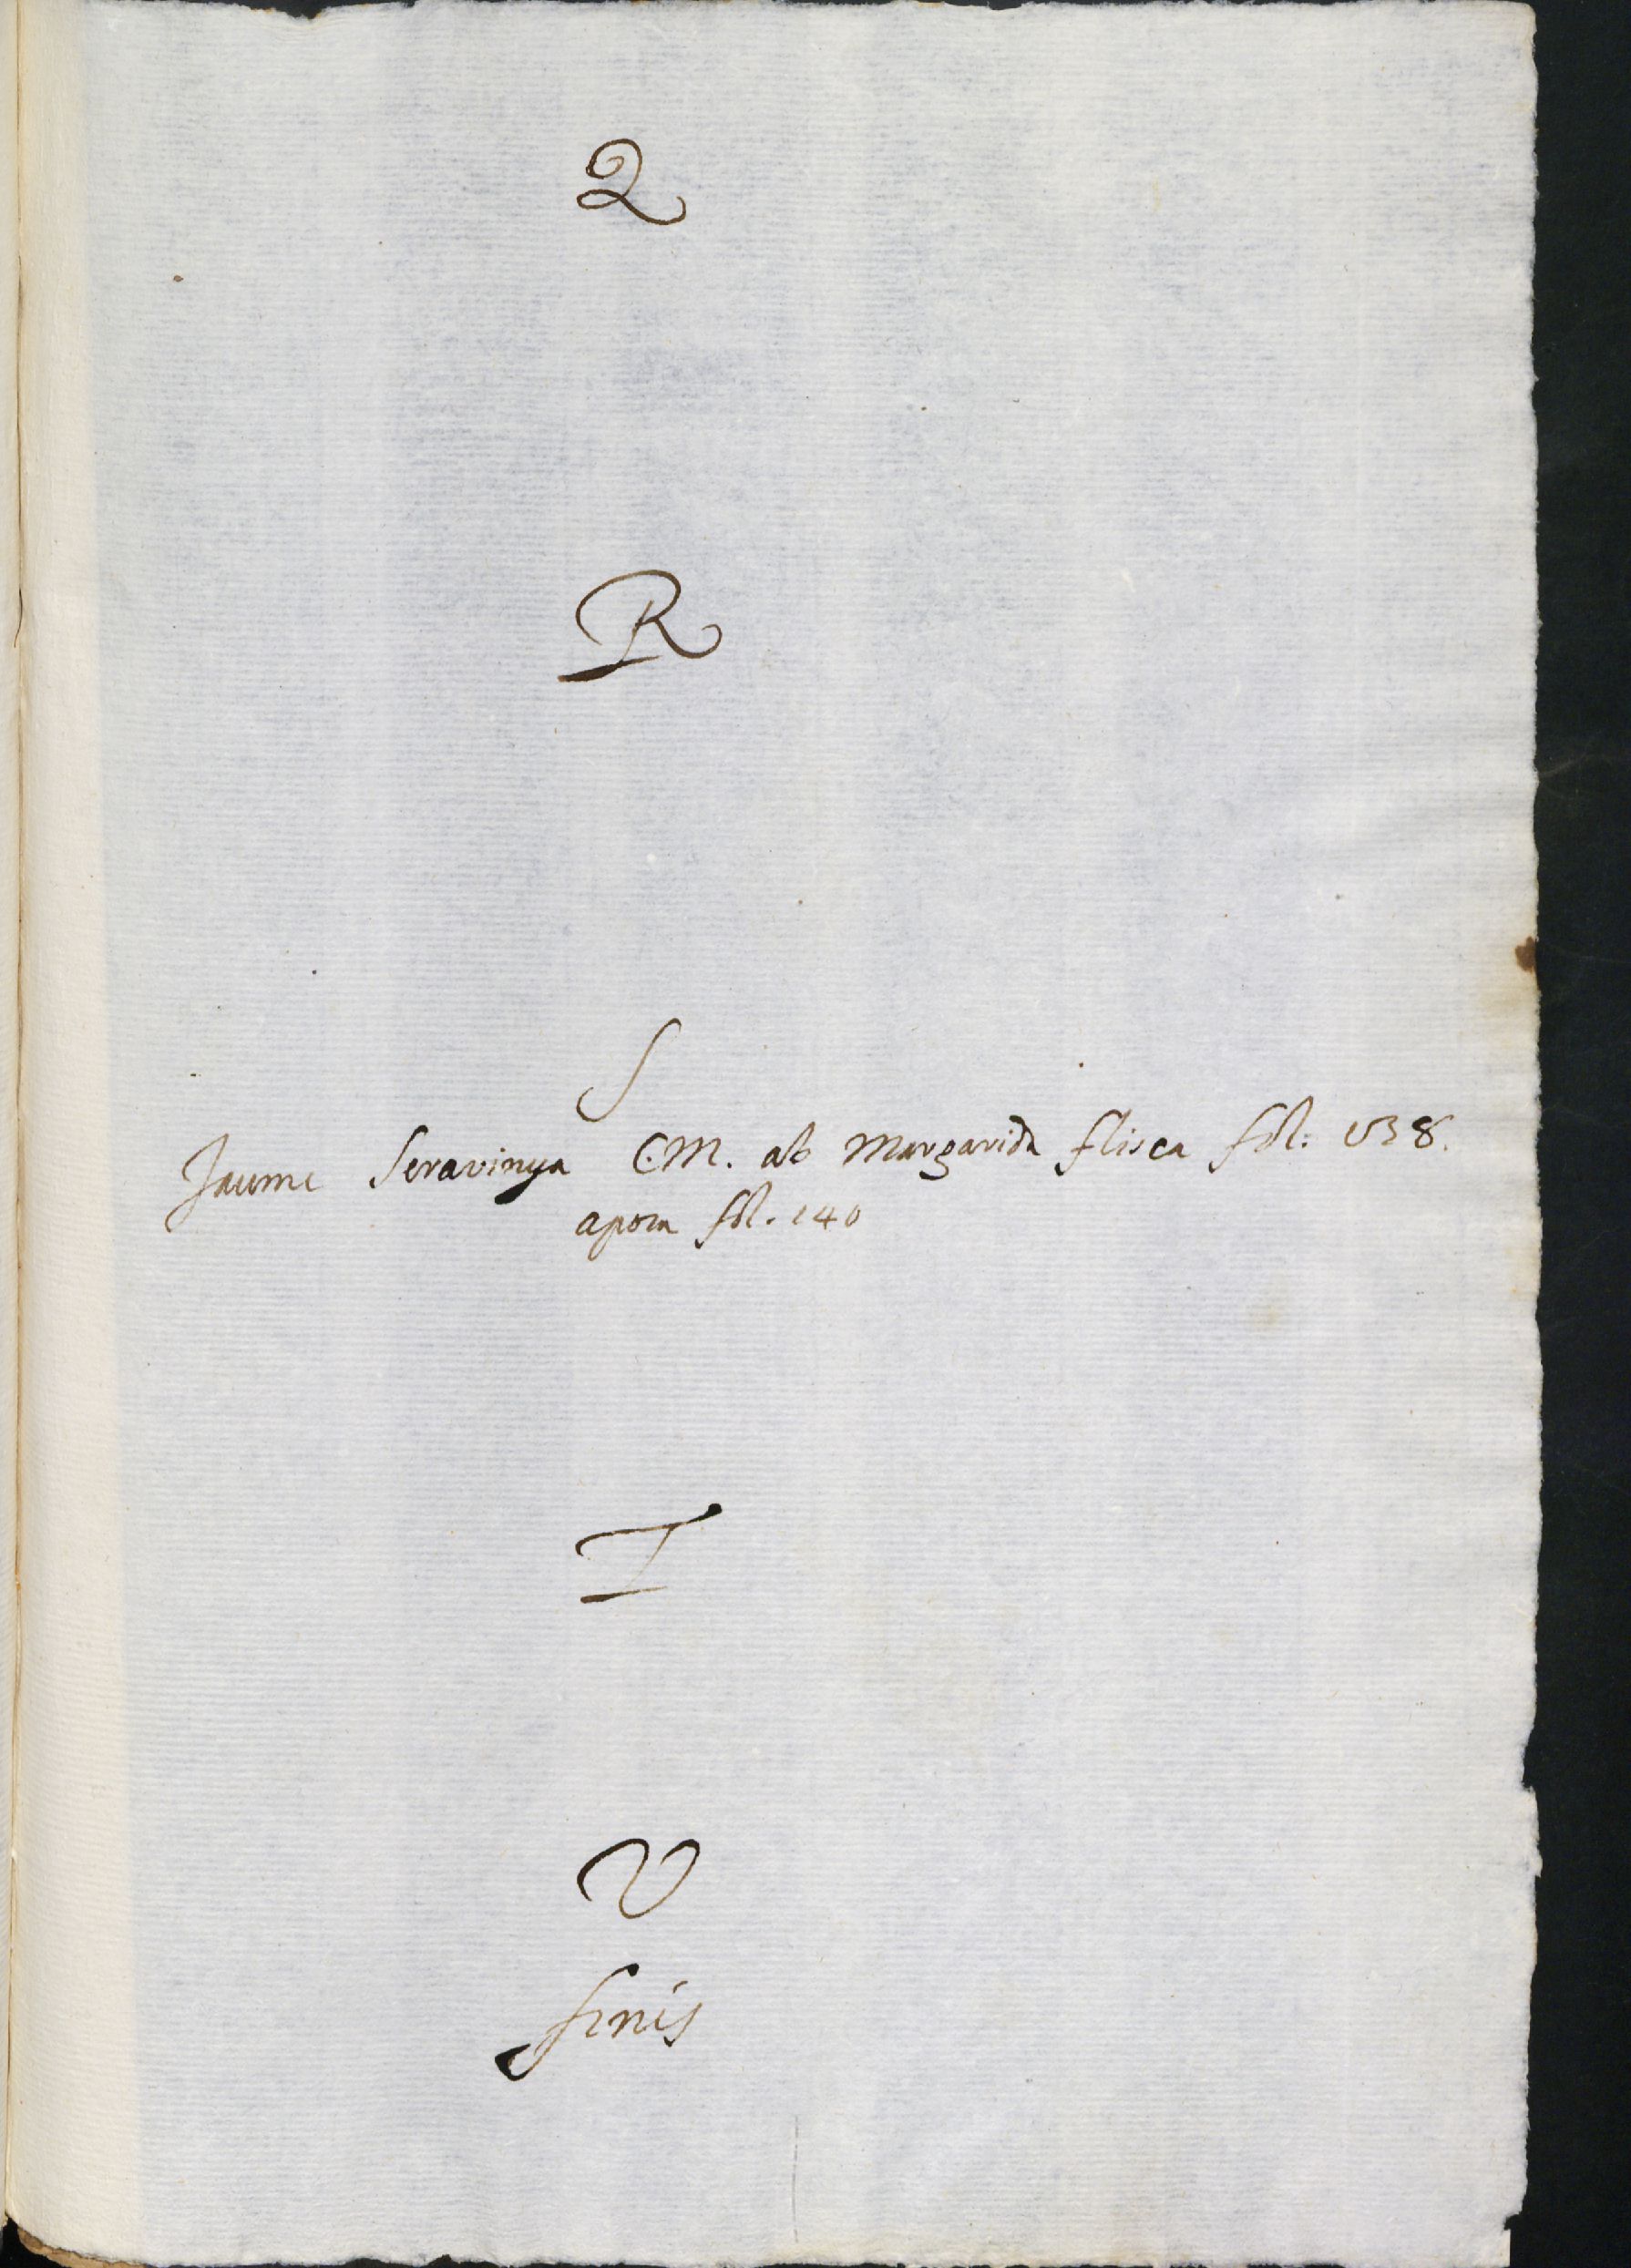 Q
R
S
Jaume Seravinya C.M. ab Margarida flisca fol: 138.
apoca fol. 140
T
V
finis